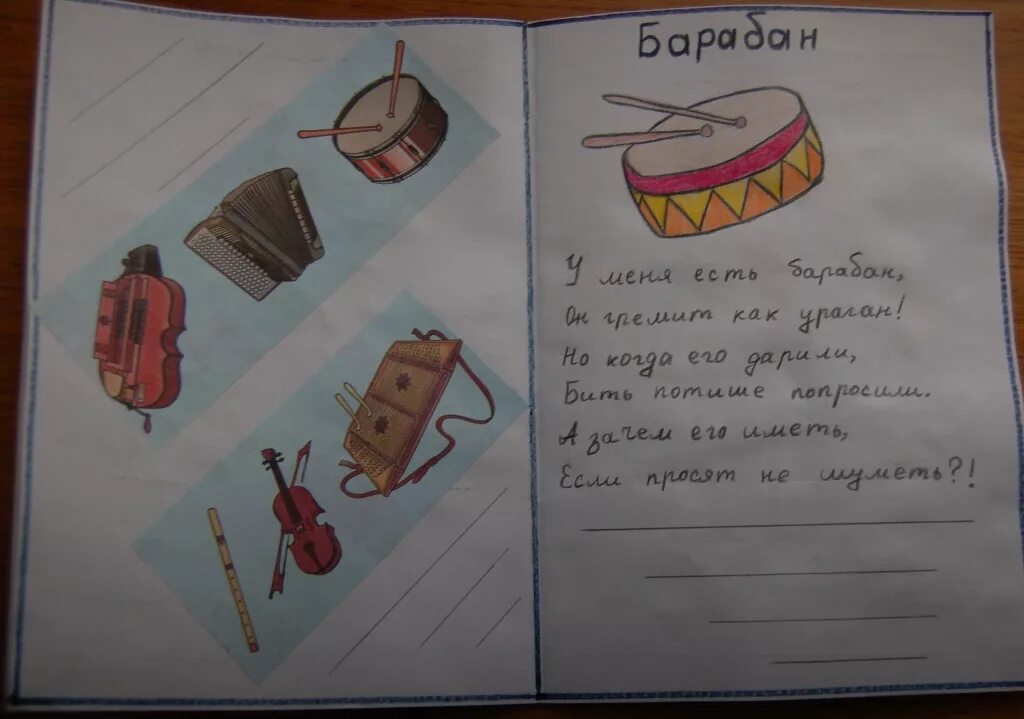 Барабан
У меня есть барабан,
Он гремит как ураган!
Но когда его дарили,
Бить потише попросили.
А зачем его иметь,
Если просят не шуметь?!